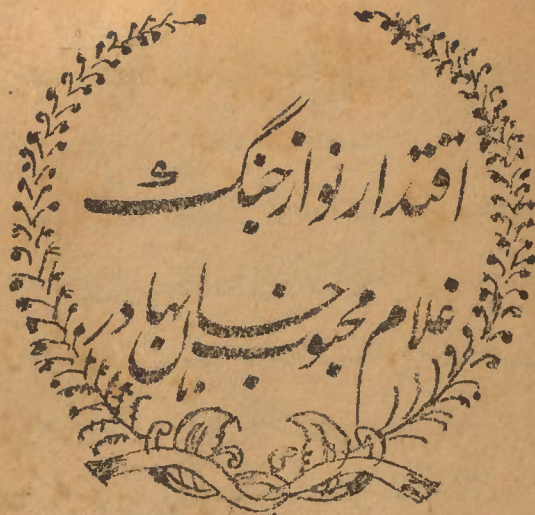 اقتدار نواز جنگ
غلام محبوب خان بہادر